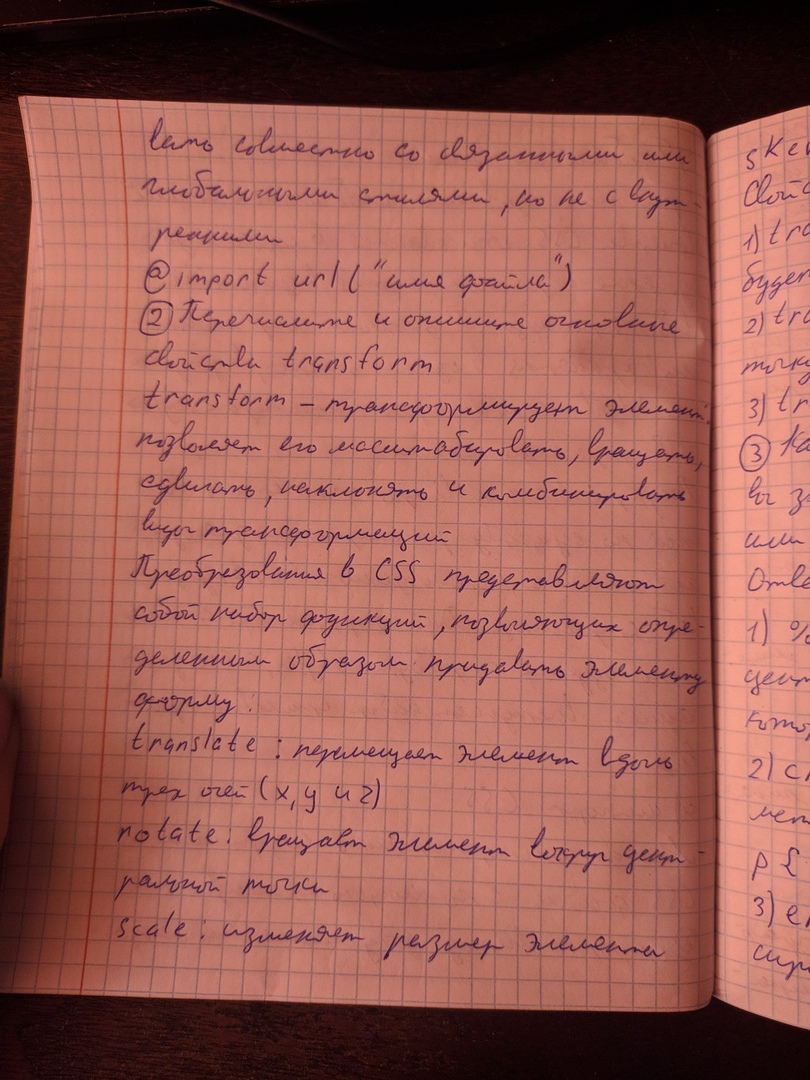 вать совместно со связанными или
глобальными стилями, но не с внут-
ренними
@import url ("имя файла")
② Перечислите и опишите основные
свойства transform
transform – трансформирует элемент,
позволяет его масштабировать, вращать,
сдвигать, наклонять и комбинировать
виды трансформаций
Преобразования в CSS представляют
собой набор функций, позволяющих опре-
деленным образом придавать элементу
форму:
translate: перемещает элемент вдоль
трех осей (x, y и z)
rotate: вращает элемент вокруг цент-
ральной точки
scale: изменяет размер элемента
свойс
1) tra
будет
2) tra
точку
3) tr
③ Ка
или
Отве
1) %
цент
котор
2)
мет
p {
3)